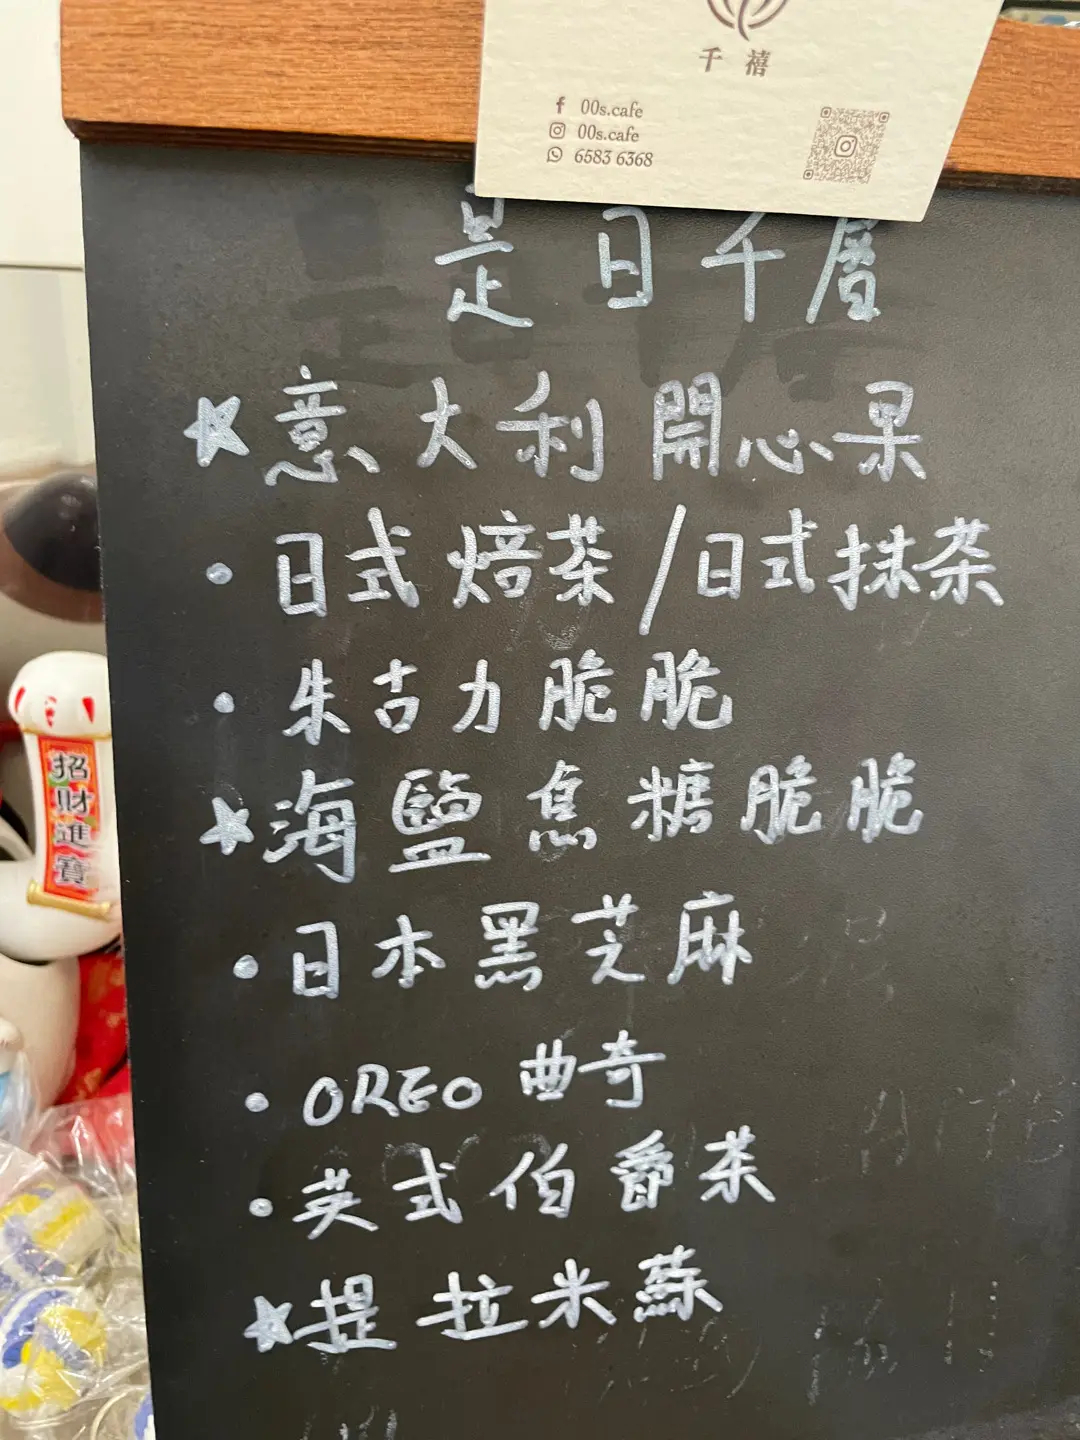 千禧
00s.cafe
00s.cafe
6583 6368
是日千層
★意大利開心果
・日式焙茶/日式抹茶
・朱古力脆脆
★海鹽焦糖脆脆
・日本黑芝麻
・OREO曲奇
・英式伯爵茶
★提拉米蘇
招財進寶